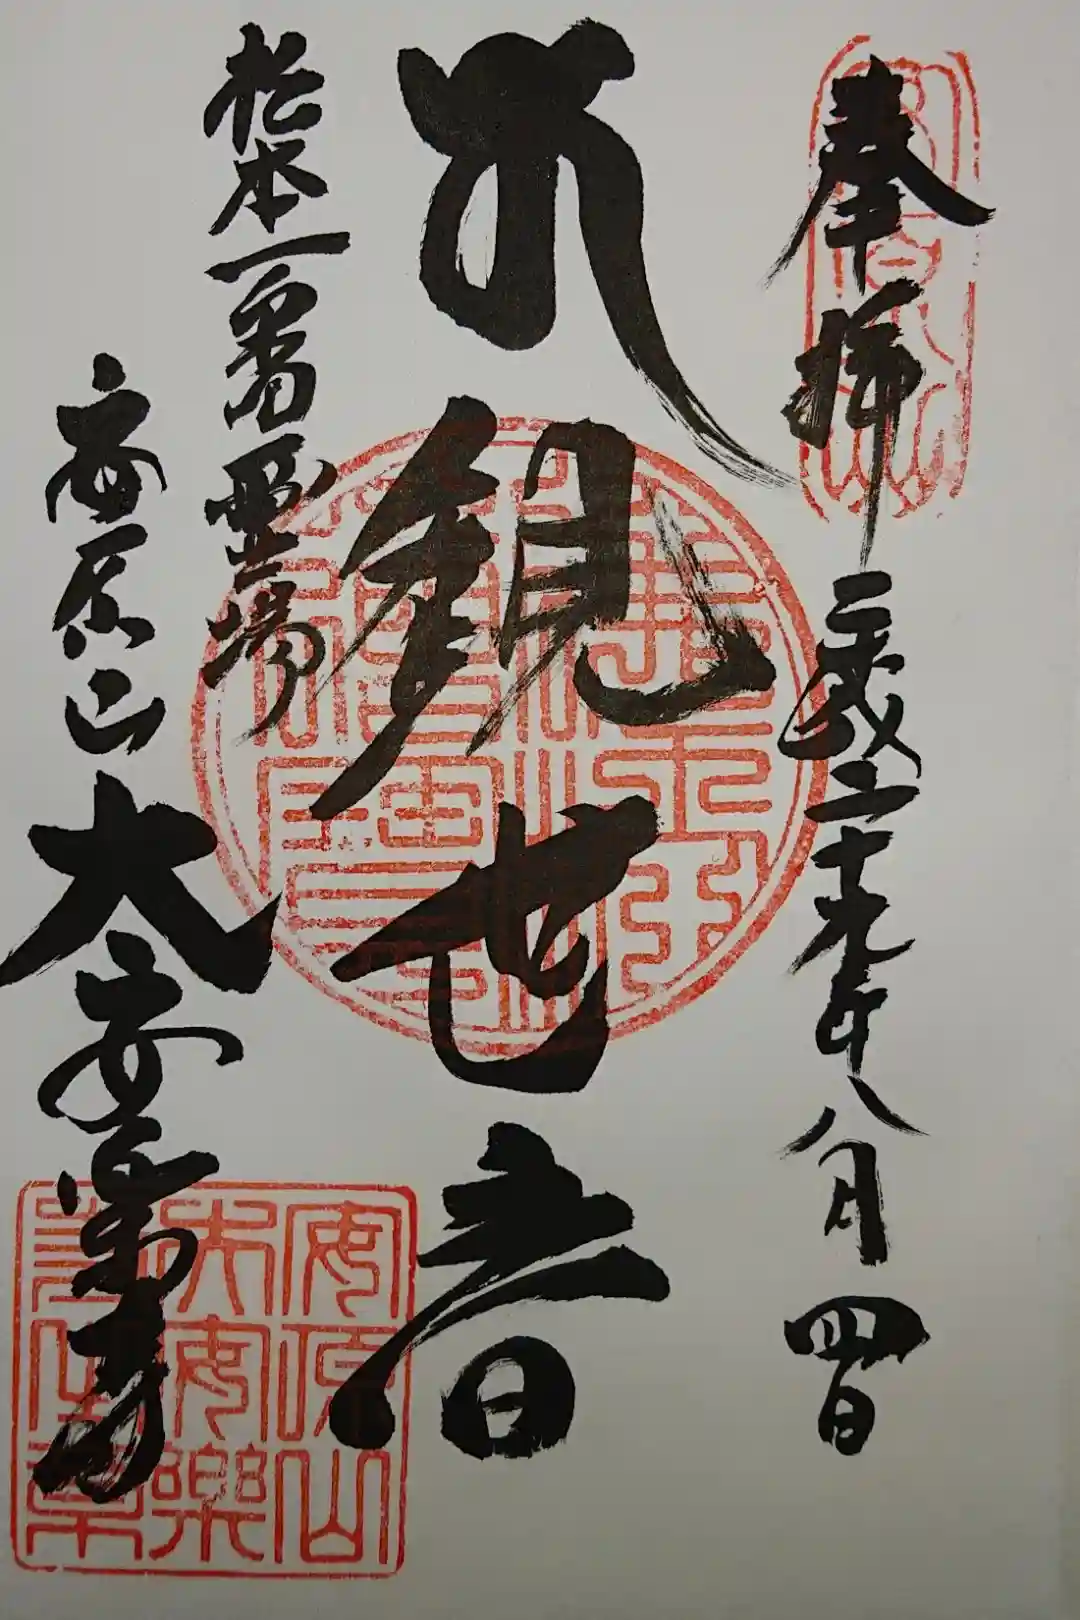 奉拝 平成二十九年八月四日
𑖭 観世音
松本一番霊場
安原山 大安楽寺
安原山
大安樂